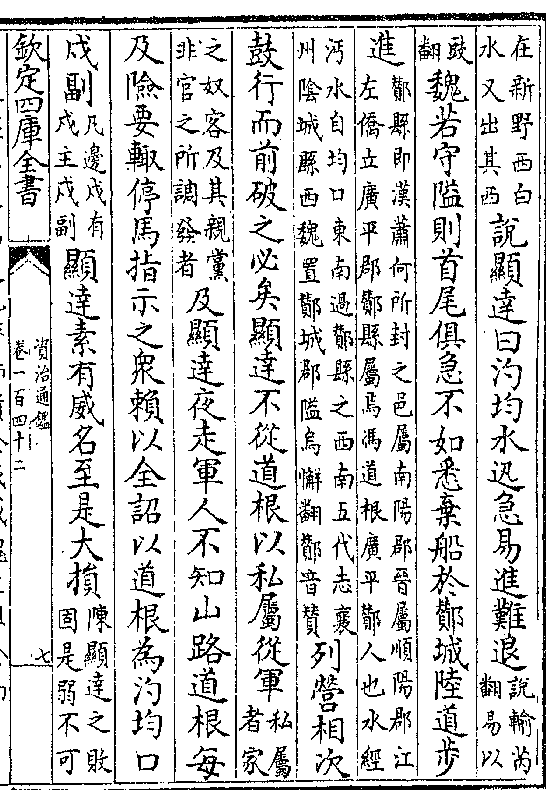 在新野西白
水又出其西
說顯達曰汋均水迅急易進難退
說輸芮
翻易以
豉
翻
魏若守隘則首尾俱急不如悉棄船於酇城陸道步
進
酇縣即漢蕭何所封之邑屬南陽郡晉屬順陽郡江
左僑立廣平郡酇縣屬焉馮道根廣平酇人也水經
沔水自均口東南過酇縣之西南五代志襄
州陰城縣西魏置酇城郡隘烏懈翻酇音贊
列營相次
鼓行而前破之必矣顯達不從道根以私屬從軍
私屬
者家
之奴客及其親黨
非官之所調發者
及顯達夜走軍人不知山路道根每
及險要輒停馬指示之眾賴以全詔以道根為汋均口
戍副
凡邊戍有
戍主戍副
顯達素有威名至是大損
陳顯達之敗
固是弱不可
欽定四庫全書
資治通鑑
卷一百四十二
七